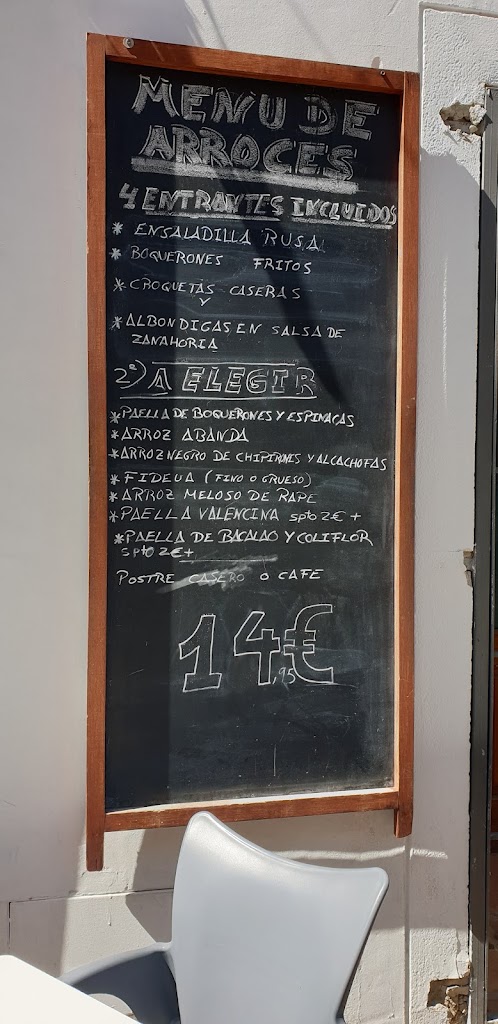 MENU DE
ARROCES
4 ENTRANTES INCLUIDOS
* ENSALADILLA RUSA
* BOQUERONES FRITOS
* CROQUETAS CASERAS
Y
* ALBONDIGAS EN SALSA DE
ZANAHORIA
2º) A ELEGIR
* PAELLA DE BOQUERONES Y ESPINACAS
* ARROZ ABANDA
* ARROZ NEGRO DE CHIPIRONES Y ALCACHOFAS
* FIDEUA (FINO O GRUESO)
* ARROZ MELOSO DE RAPE
* PAELLA VALENCINA spto 2€ +
* PAELLA DE BACALAO Y COLIFLOR
spto 2€ +
POSTRE CASERO O CAFE
14,95€